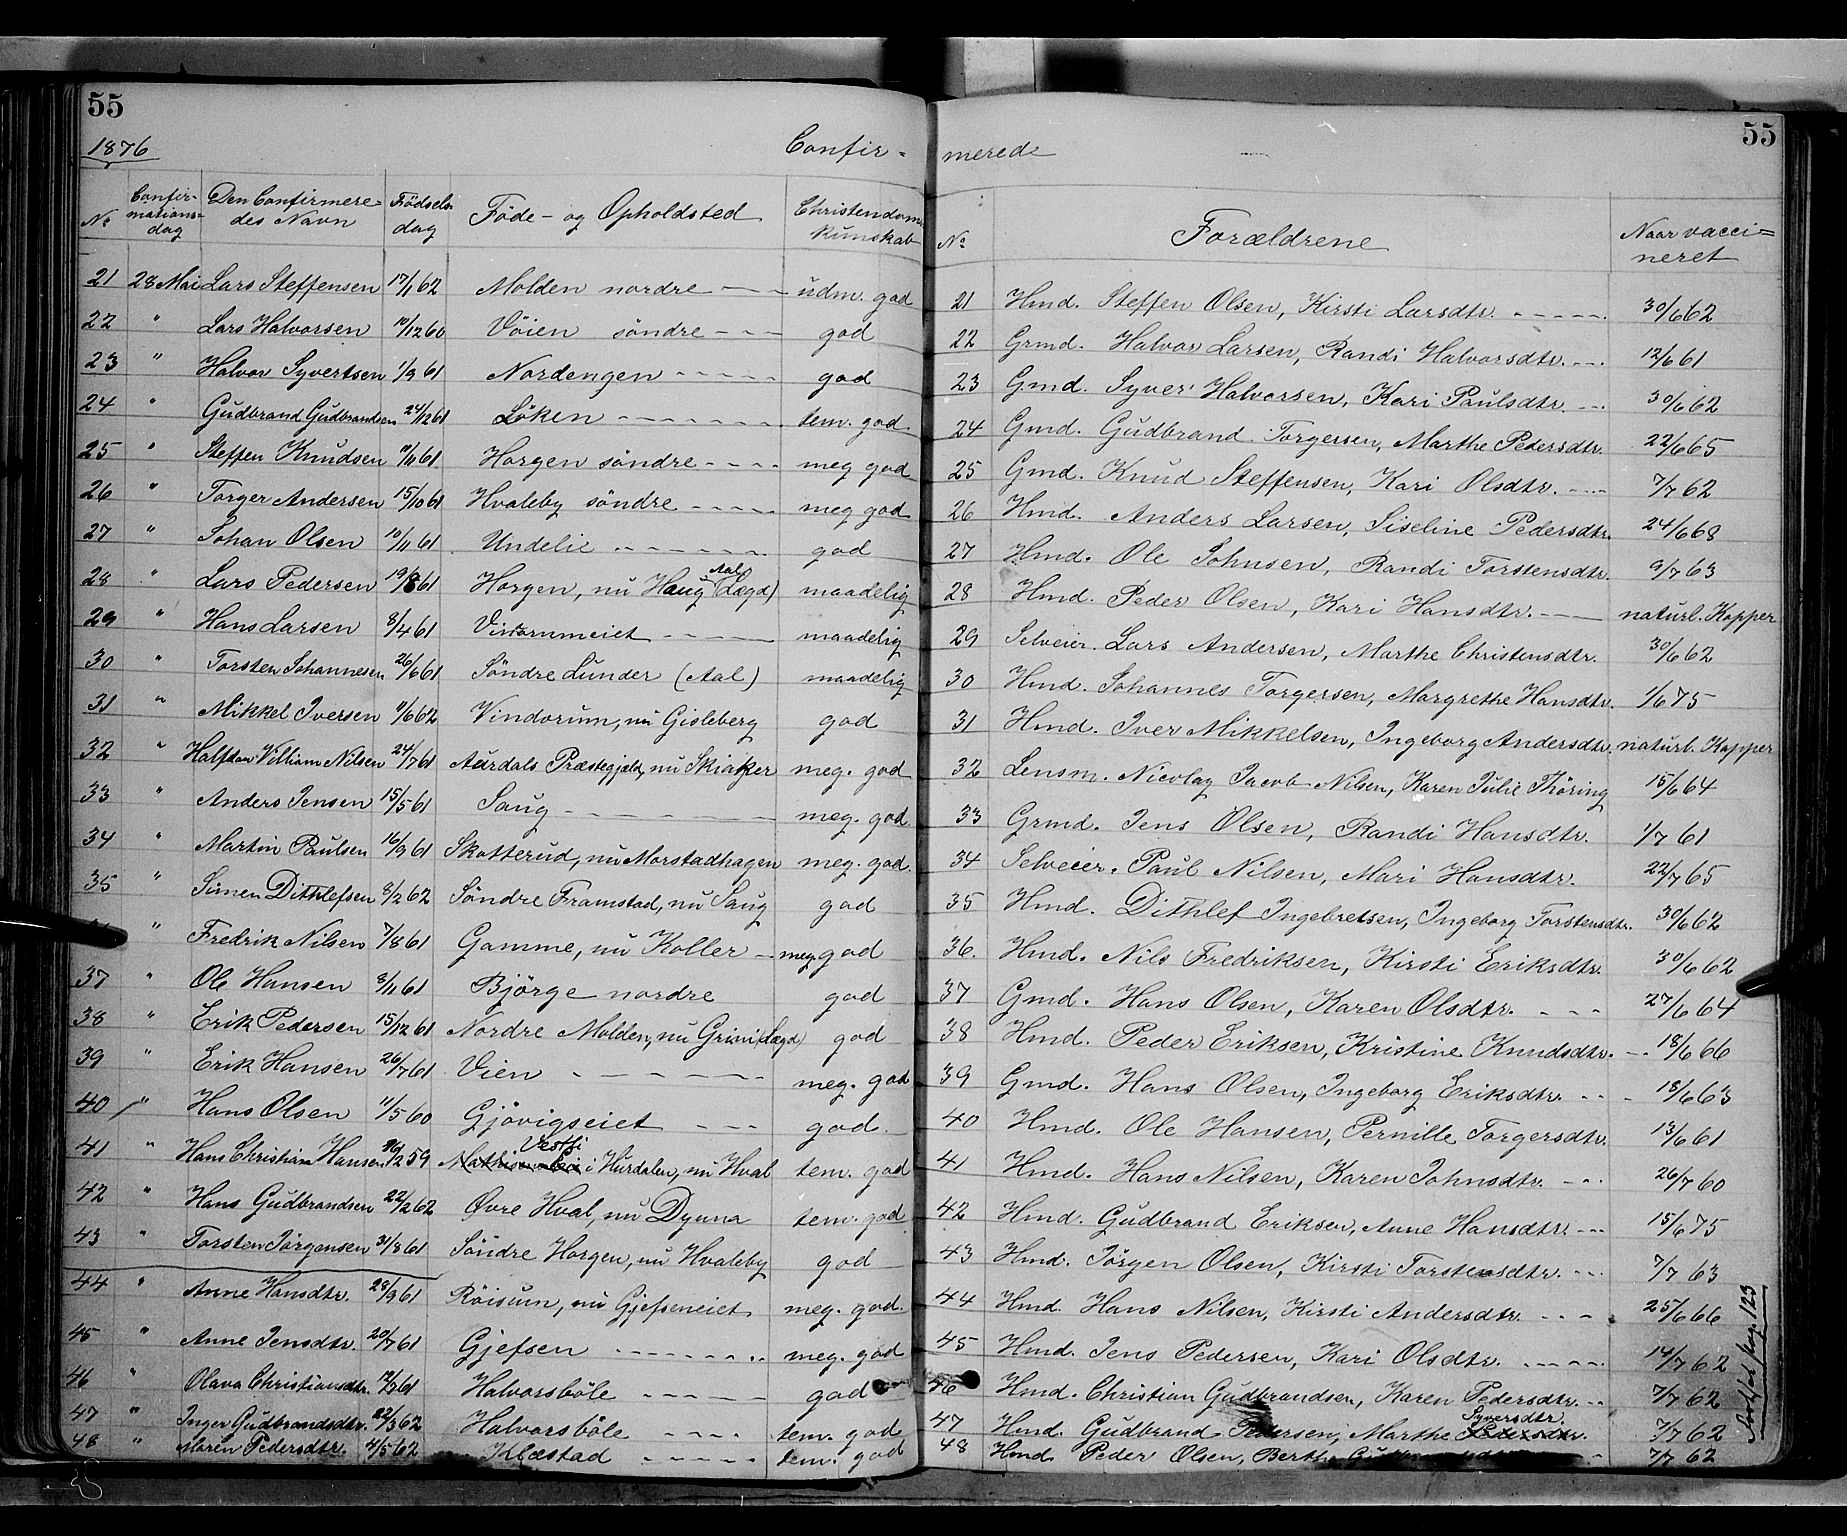 55
1876
Confir-
No
Confir-mations-dag
Den Confirmere-des Navn
Födsels-dag
Föde- og Opholdsted
Christendoms-kunskab
21 28 Mai Lars Steffensen 17/1 62 Molden nordre udm. god
22 " Lars Halvorsen 10/12 60 Vöien söndre god
23 " Halvor Syvertsen 1/9 61 Nordengen god
24 " Gudbrand Gudbrandsen 24/12 61 Löken tem. god
25 " Steffen Knudsen 9/11 61 Horgen söndre meg god
26 " Torger Andersen 15/10 61 Hvaleby söndre meg god
27 " Johan Olsen 10/11 61 Undelie god
28 " Lars Pedersen 19/8 61 Horgen, nu Haug Aal (Lægd) maadelig
29 " Hans Larsen 8/4 61 maadelig
30 " Torsten Johannesen 26/6 61 Söndre Lunder (Aal) maadelig
31 " Mikkel Iversen 11/6 62 Vindorum, nu Gisleberg god
32 " Halfdan Villiam Nilsen 24/7 61 Aurdals Præstegjeld, nu Skiaker meg. god
33 " Anders Jensen 15/5 61 Saug meg. god
34 " Martin Paulsen 16/9 61 Skotterud, nu Morstadhagen meg. god
35 " Simen Dithlefsen 8/2 62 Söndre Framstad, nu Saug god
" Fredrik Nilsen 7/8 61 Gamme, nu Koller meg. god
37 " Ole Hansen 8/11 61 Bjørge nordre god
38 " Erik Pedersen 15/12 61 Nordre Molden, nu Grini (Lægd) god
39 " Erik Hansen 26/7 61 Vien meg. god
40 " Hans Olsen 11/5 60 Gjövigseiet god
41 " Hans Christian Hansen 59 i Hurdalen, nu Hval tem. god
42 " Hans Gudbrandsen 22/2 62 Øvre Hval, nu Dynna tem. god
43 " Torsten Jörgensen 31/8 61 Söndre Horgen, nu Hvaleby god
44 " Anne Hansdtr. 28/9 61 Röisum, nu Gjefseneiet meg. god.
45 " Anne Jensdtr. 20/7 61 Gjefsen meg. god
46 " Olava Christiansdtr. 61 Halvorsböle god
47 " Inger Gudbrandsdtr. 22/3 62 Halvorsböle tem. god
48 " Maren Pedersdtr. 4/5 62 Klæstad tem. god
55
merede
No
Forældrene
Naar vacci=neret
21 Hmd. Steffen Olsen, Kirsti Larsdtr. 30/6 62
22 Grmd. Halvor Larsen, Randi Halvorsdtr. 12/6 61
23 Gmd. Syver Halvorsen, Kari Paulsdtr. 30/6 62
24 Gmd. Gudbrand Torgersen, Marthe Pedersdtr. 22/6 65
25 Gmd. Knud Steffensen, Kari Olsdtr. 7/7 62
26 Hmd. Anders Larsen, Siseline Pedersdtr. 24/6 68
27 Hmd. Ole Johnsen, Randi Torstensdtr. 9/7 63
28 Hmd. Peder Olsen, Kari Hansdtr. naturl. Kopper
29 Selveier. Lars Andersen, Marthe Christensdtr. 30/6 62
30 Hmd. Johannes Torgersen, Margrethe Hansdtr. 1/6 75
31 Hmd. Iver Mikkelsen, Ingeborg Andersdtr. naturl. Kopper
32 Lensm. Nicolay Jacob Nilsen, Karen Julie Thöring 15/6 64
33 Grmd. Jens Olsen, Randi Hansdtr. 1/7 61
34 Selveier. Paul Nilsen, Mari Hansdtr. 22/7 65
35 Hmd. Dithlef Ingebretsen, Ingeborg Torstensdtr. 30/6 62
36. Hmd. Nils Fredriksen, Kirsti Eriksdtr. 30/6 62
37 Gmd. Hans Olsen, Karen Olsdtr. 27/6 64
38 Hmd. Peder Eriksen, Kristine Knudsdtr. 18/6 66
39 Gmd. Hans Olsen, Ingeborg Eriksdtr. 18/6 63
40 Hmd. Ole Hansen, Pernille Torgersdtr. 13/6 61
41 Hmd. Hans Nilsen, Karen Johnsdtr. 26/7 60
42 Hmd. Gudbrand Eriksen, Anne Hansdtr. 15/6 75
43 Hmd. Jörgen Olsen, Kirsti Torstensdtr. 7/7 63
44 Hmd. Hans Nilsen, Kirsti Andersdtr. 25/6 66
45 Hmd. Jens Pedersen, Kari Olsdtr. 14/7 62
46 Hmd. Christian Gudbrandsen, Karen Pedersdtr. 7/7 62
47 Hmd. Gudbrand Pedersen, Marthe Syversdtr. 7/7 62
48 Hmd Peder Olsen, 7/7 62
pag. 123